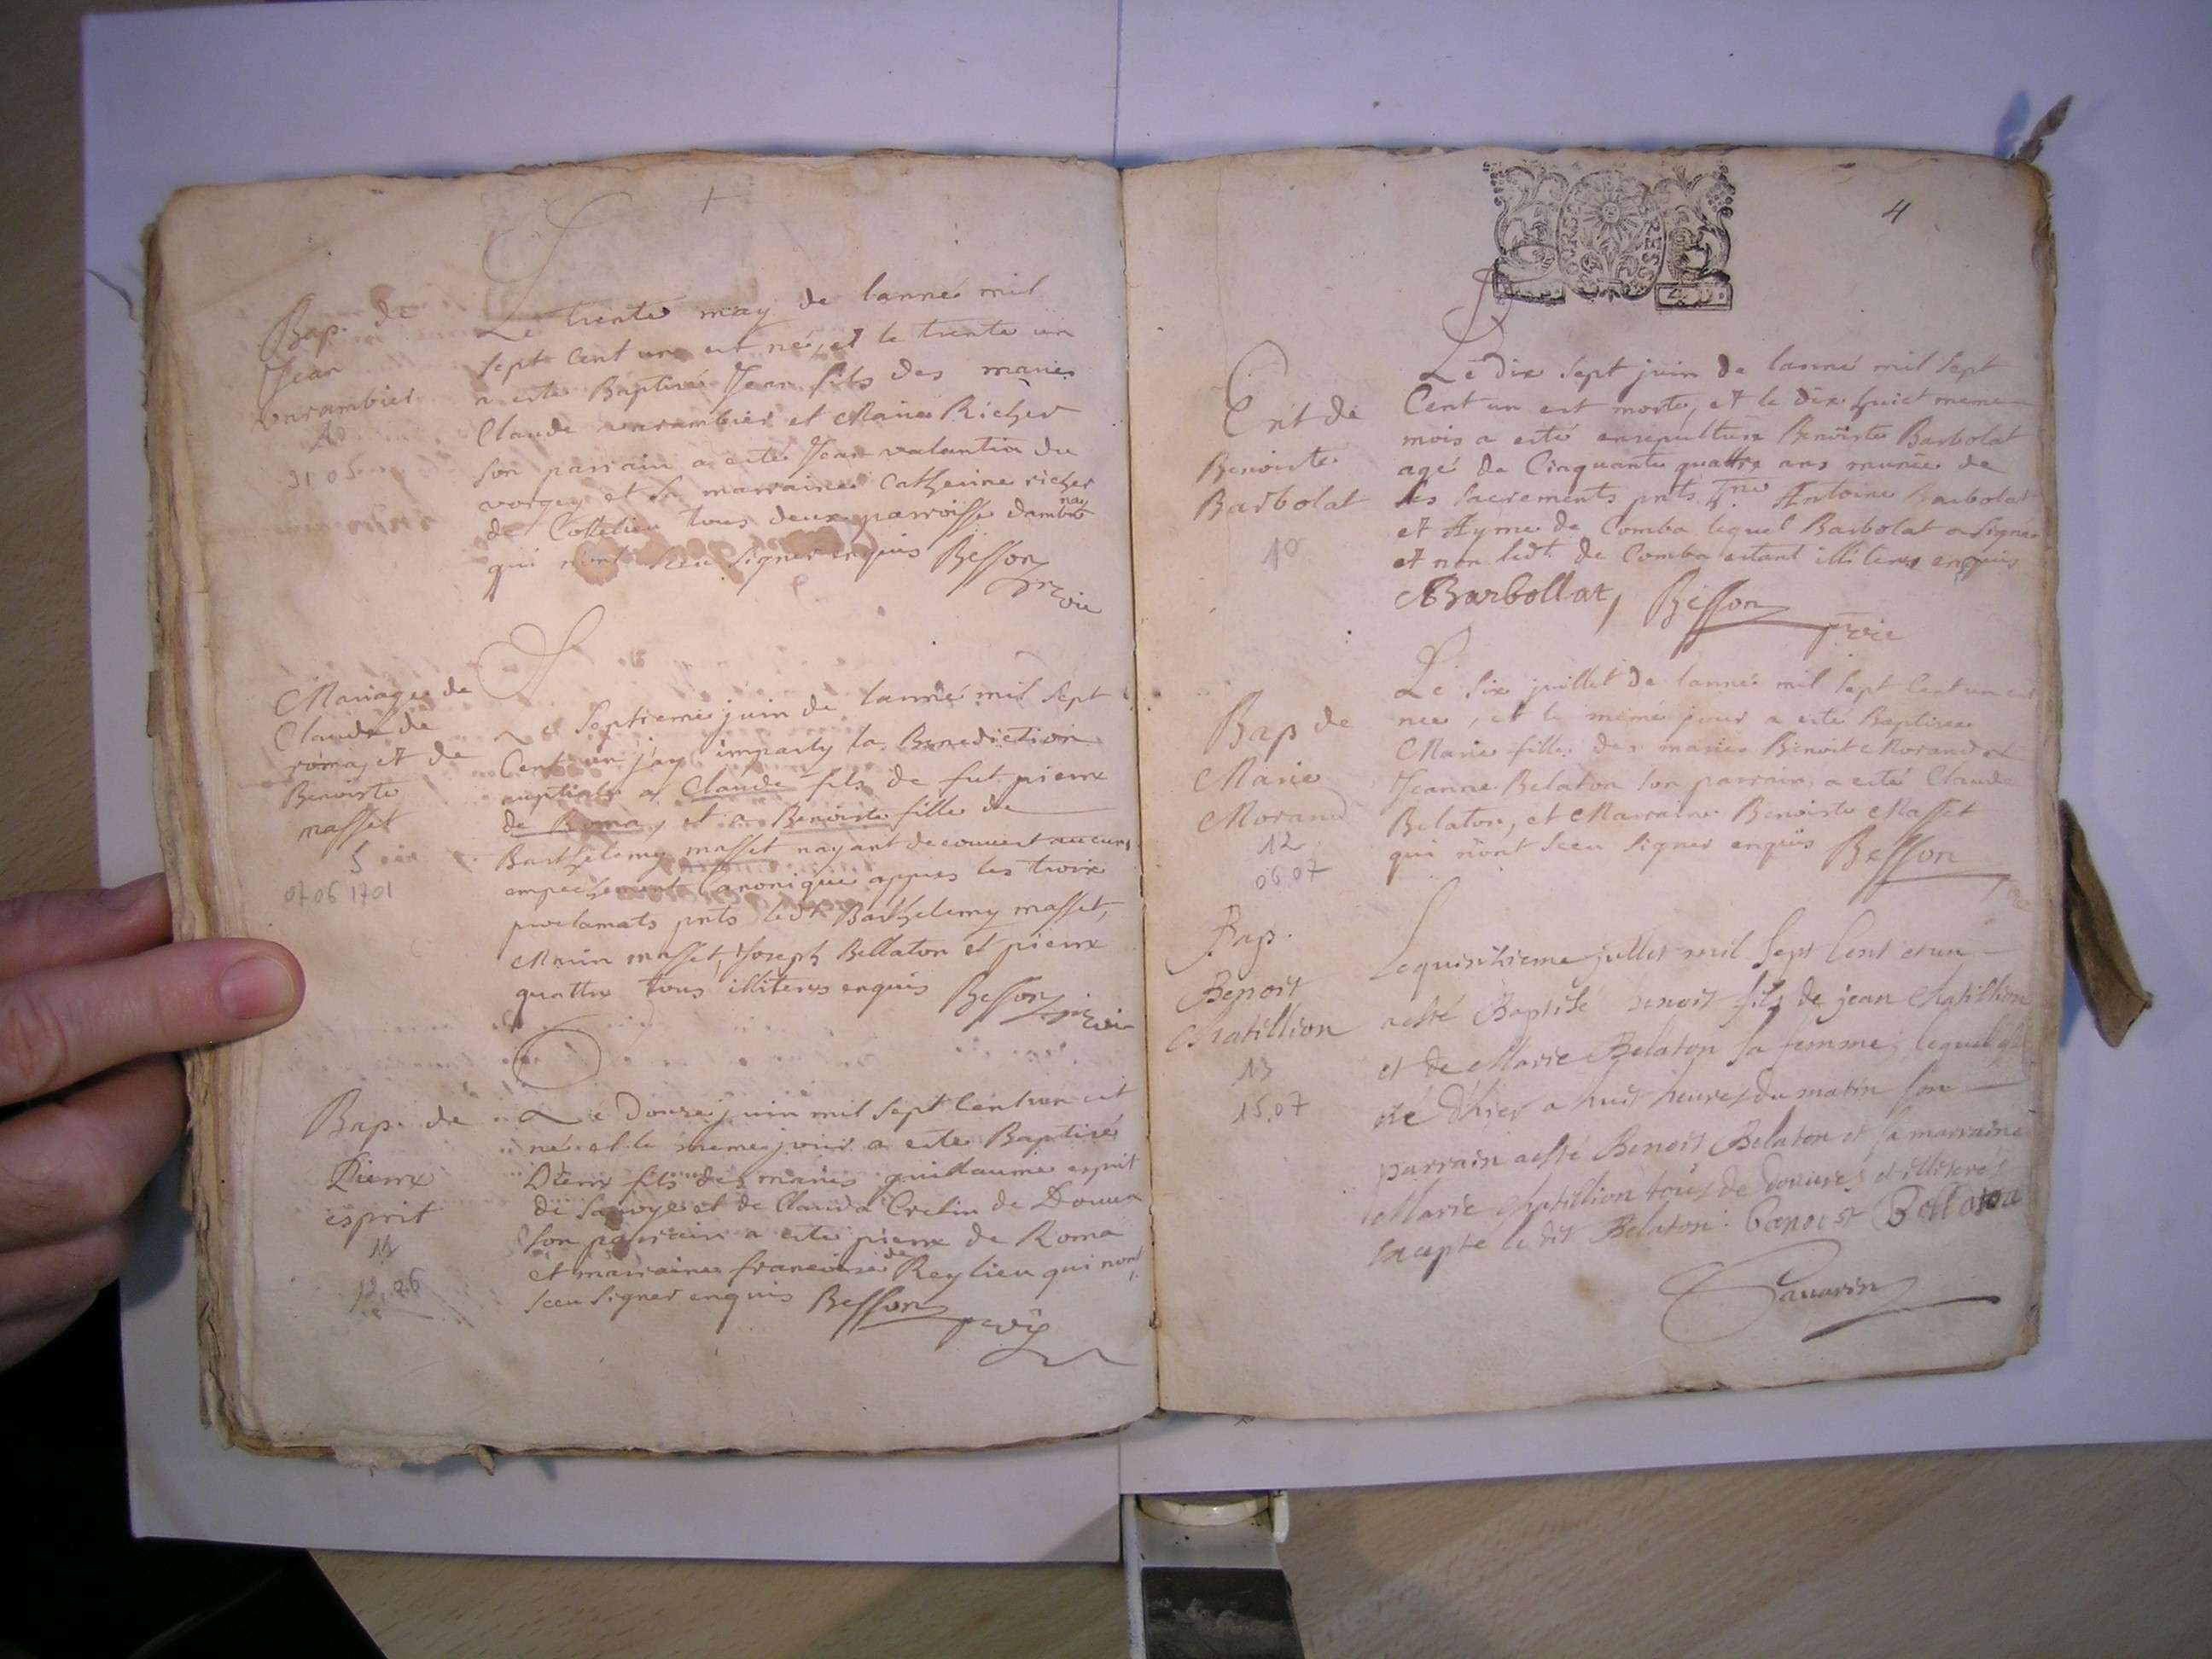 Bap. de
Jean
varambier
10
31 05
Le trente may de lanné mil
sept Cent un est né, et le trente un
a esté Baptisé Jean fils des mariés
Claude varambier et Marie Richer
son parrain a esté Jean valantin du
vorgey et sa marraine Catherine richer
de Cottelieu tous deux parroisse dambro
na
qui n'ont sceu signer enquis Besson
Mariage de
Claude de
roma, et de
Benoiste
masset
5
07 06 1701
Le septieme juin de lanné mil sept
Cent un j'ay imparty la Benediction
nuptiale a Claude fils de fut pierre
de Roma, et a Benoiste fille de
Barthelemy masset nayant decouvert aucuns
empechement Canonique appres les troix
proclamats pnts ledt Barthelemy masset,
masset, Joseph Bellaton et pierre
quattre tous illiteres enquis Besson
Bap. de
Pierre
esprit
11
12.06
Le douze juin mil sept Cent un est
né et le meme jour a esté Baptisé
Pierre fils des mariés guillaume esprit
de Savoye et de Clauda Cretin de Douvre
son parrain a esté pierre de Roma
et marraine francoise de Reylieu qui nont
sceu signer enquis Besson
4
Ent de
Benoiste
Barbolat
10
Le dix sept juin de lanné mil sept
Cent un est morte, et le dix huict meme
mois a esté ensepulturé Benoiste Barbolat
agé de Cinquante quattre ans munie de
ses sacrements pnts Antoine Barbolat
et Ayme de Comba lequel Barbolat a signé
et non ledt. de Comba estant illiteré enquis
Barbollat, Besson
Bap de
Marie
Morand
12
06.07
Le six juillet de lanné mil sept Cent un est
nee, et le mémé jour a esté Baptisee
Marie fille des mariés Benoit Morand et
Jeanne Belaton son parrain a esté Claude
Belaton, et Marraine Benoiste Masset
qui n'ont sceu signer enquis Besson
Bap.
Benoit
Chatillion
13
15.07
Le quinzieme jullet mil sept Cent et un
a esté Baptisé benoit fils de jean Chatillion
et de Marie Belaton sa femme, lequel
né d'hier a huit heures du matin son
parrain a esté Benoit Belaton et sa marraine
Marie Chatillion tous de douvres et illiterés
excepte le dit Belaton. Benoist Bellaton
Savarin